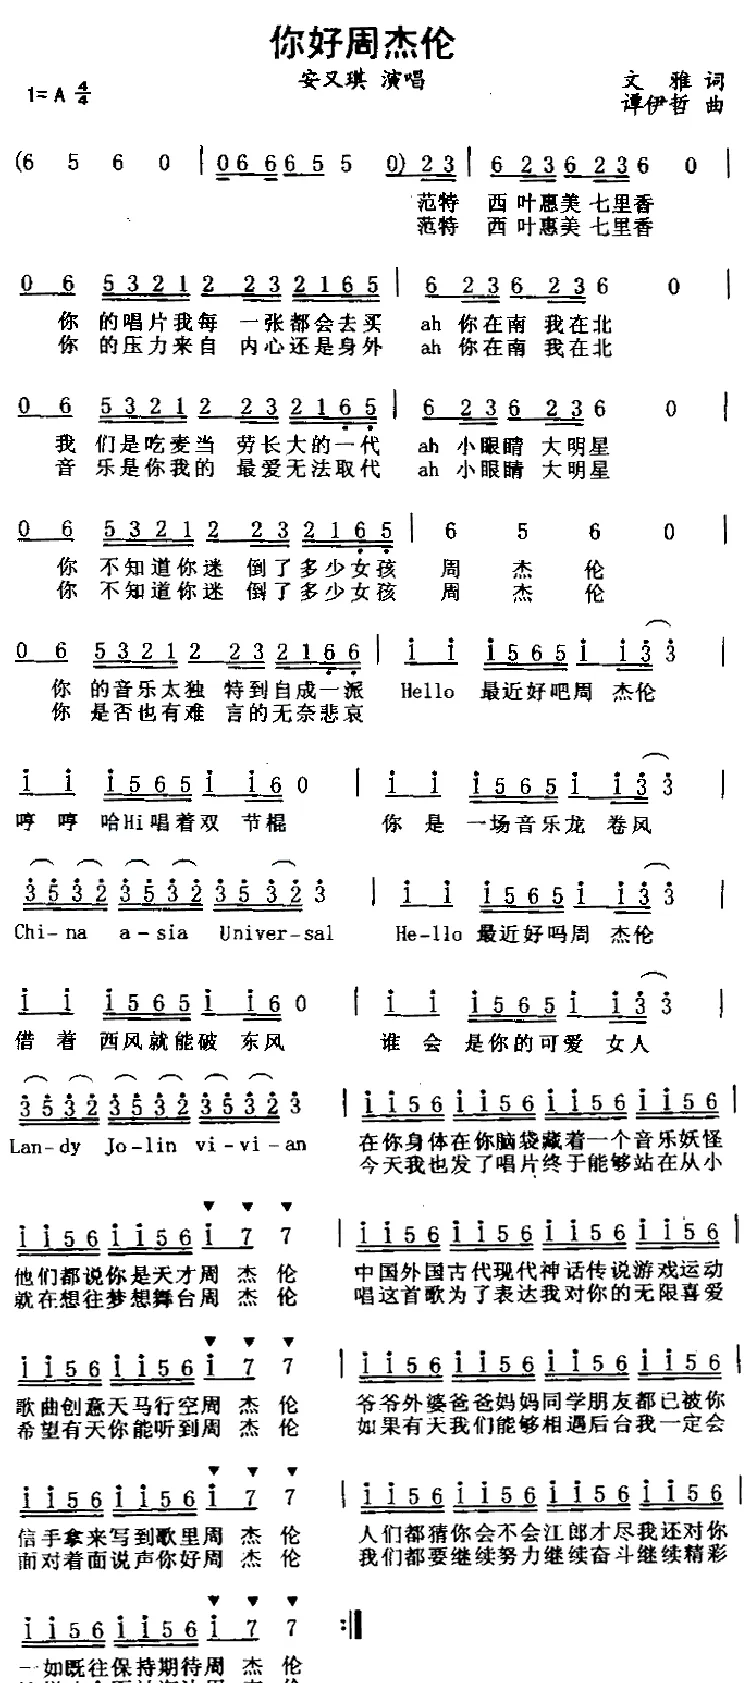 你好周杰伦
安又琪 演唱
1=A 4/4
文 雅 词
谭伊哲 曲
(6 5 6 0 | 06 6665 5 0) 23 | 6 236 236 0 |
范特 西叶惠美七里香
范特 西叶惠美七里香
0 6 5321 2 23 2165 | 6 236 236 0 |
你 的唱片我每 一张都会去买 ah 你在南 我在北
你 的压力来自 内心还是身外 ah 你在南 我在北
0 6 5321 2 23 2165 | 6 236 236 0 |
我 们是吃麦当 劳长大的一代 ah 小眼睛 大明星
音 乐是你我的 最爱无法取代 ah 小眼睛 大明星
0 6 5321 2 23 2165 | 6 5 6 0 |
你 不知道你迷 倒了多少女孩 周 杰 伦
你 不知道你迷 倒了多少女孩 周 杰 伦
0 6 5321 2 23 2166 | i i i565i i33 |
你 的音乐太独 特到自成一派 Hello 最近好吧周 杰伦
你 是否也有难 言的无奈悲哀
i i i565i i60 | i i i565i i33 |
哼 哼 哈Hi唱着双 节棍 你 是 一场音乐龙 卷风
3532 3532 3532 3 | i i i565i i33 |
Chi-na a-sia Univer-sal He-llo 最近好吗周 杰伦
i i i565i i60 | i i i565i i33 |
借 着 西风就能破 东风 谁 会 是你的可爱 女人
3532 3532 3532 3 | ii56 ii56 ii56 ii56 |
Lan-dy Jo-lin vi-vi-an 在你身体在你脑袋藏着一个音乐妖怪
今天我也发了唱片终于能够站在从小
ii56 ii56 i 7 7 | ii56 ii56 ii56 ii56 |
他们都说你是天才周 杰 伦 中国外国古代现代神话传说游戏运动
就在想往梦想舞台周 杰 伦 唱这首歌为了表达我对你的无限喜爱
ii56 ii56 i 7 7 | ii56 ii56 ii56 ii56
歌曲创意天马行空周 杰 伦 爷爷外婆爸爸妈妈同学朋友都已被你
希望有天你能听到周 杰 伦 如果有天我们能够相遇后台我一定会
ii56 ii56 i 7 7 | ii56 ii56 ii56 ii56 |
信手拿来写到歌里周 杰 伦 人们都猜你会不会江郎才尽我还对你
面对着面说声你好周 杰 伦 我们都要继续努力继续奋斗继续精彩
ii56 ii56 i 7 7 :||
一如既往保持期待周 杰 伦